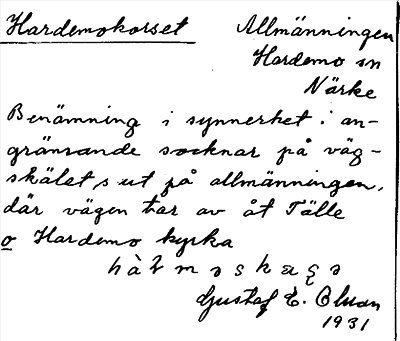 Hardemokorset
Allmänningen
Hardemo sn
Närke
Benämning i synnerhet i an-
gränsande socknar på väg-
skälet s ut på allmänningen,
där vägen tar av åt Tälle
o Hardemo kyrka
Gustaf E. Olsson
1931